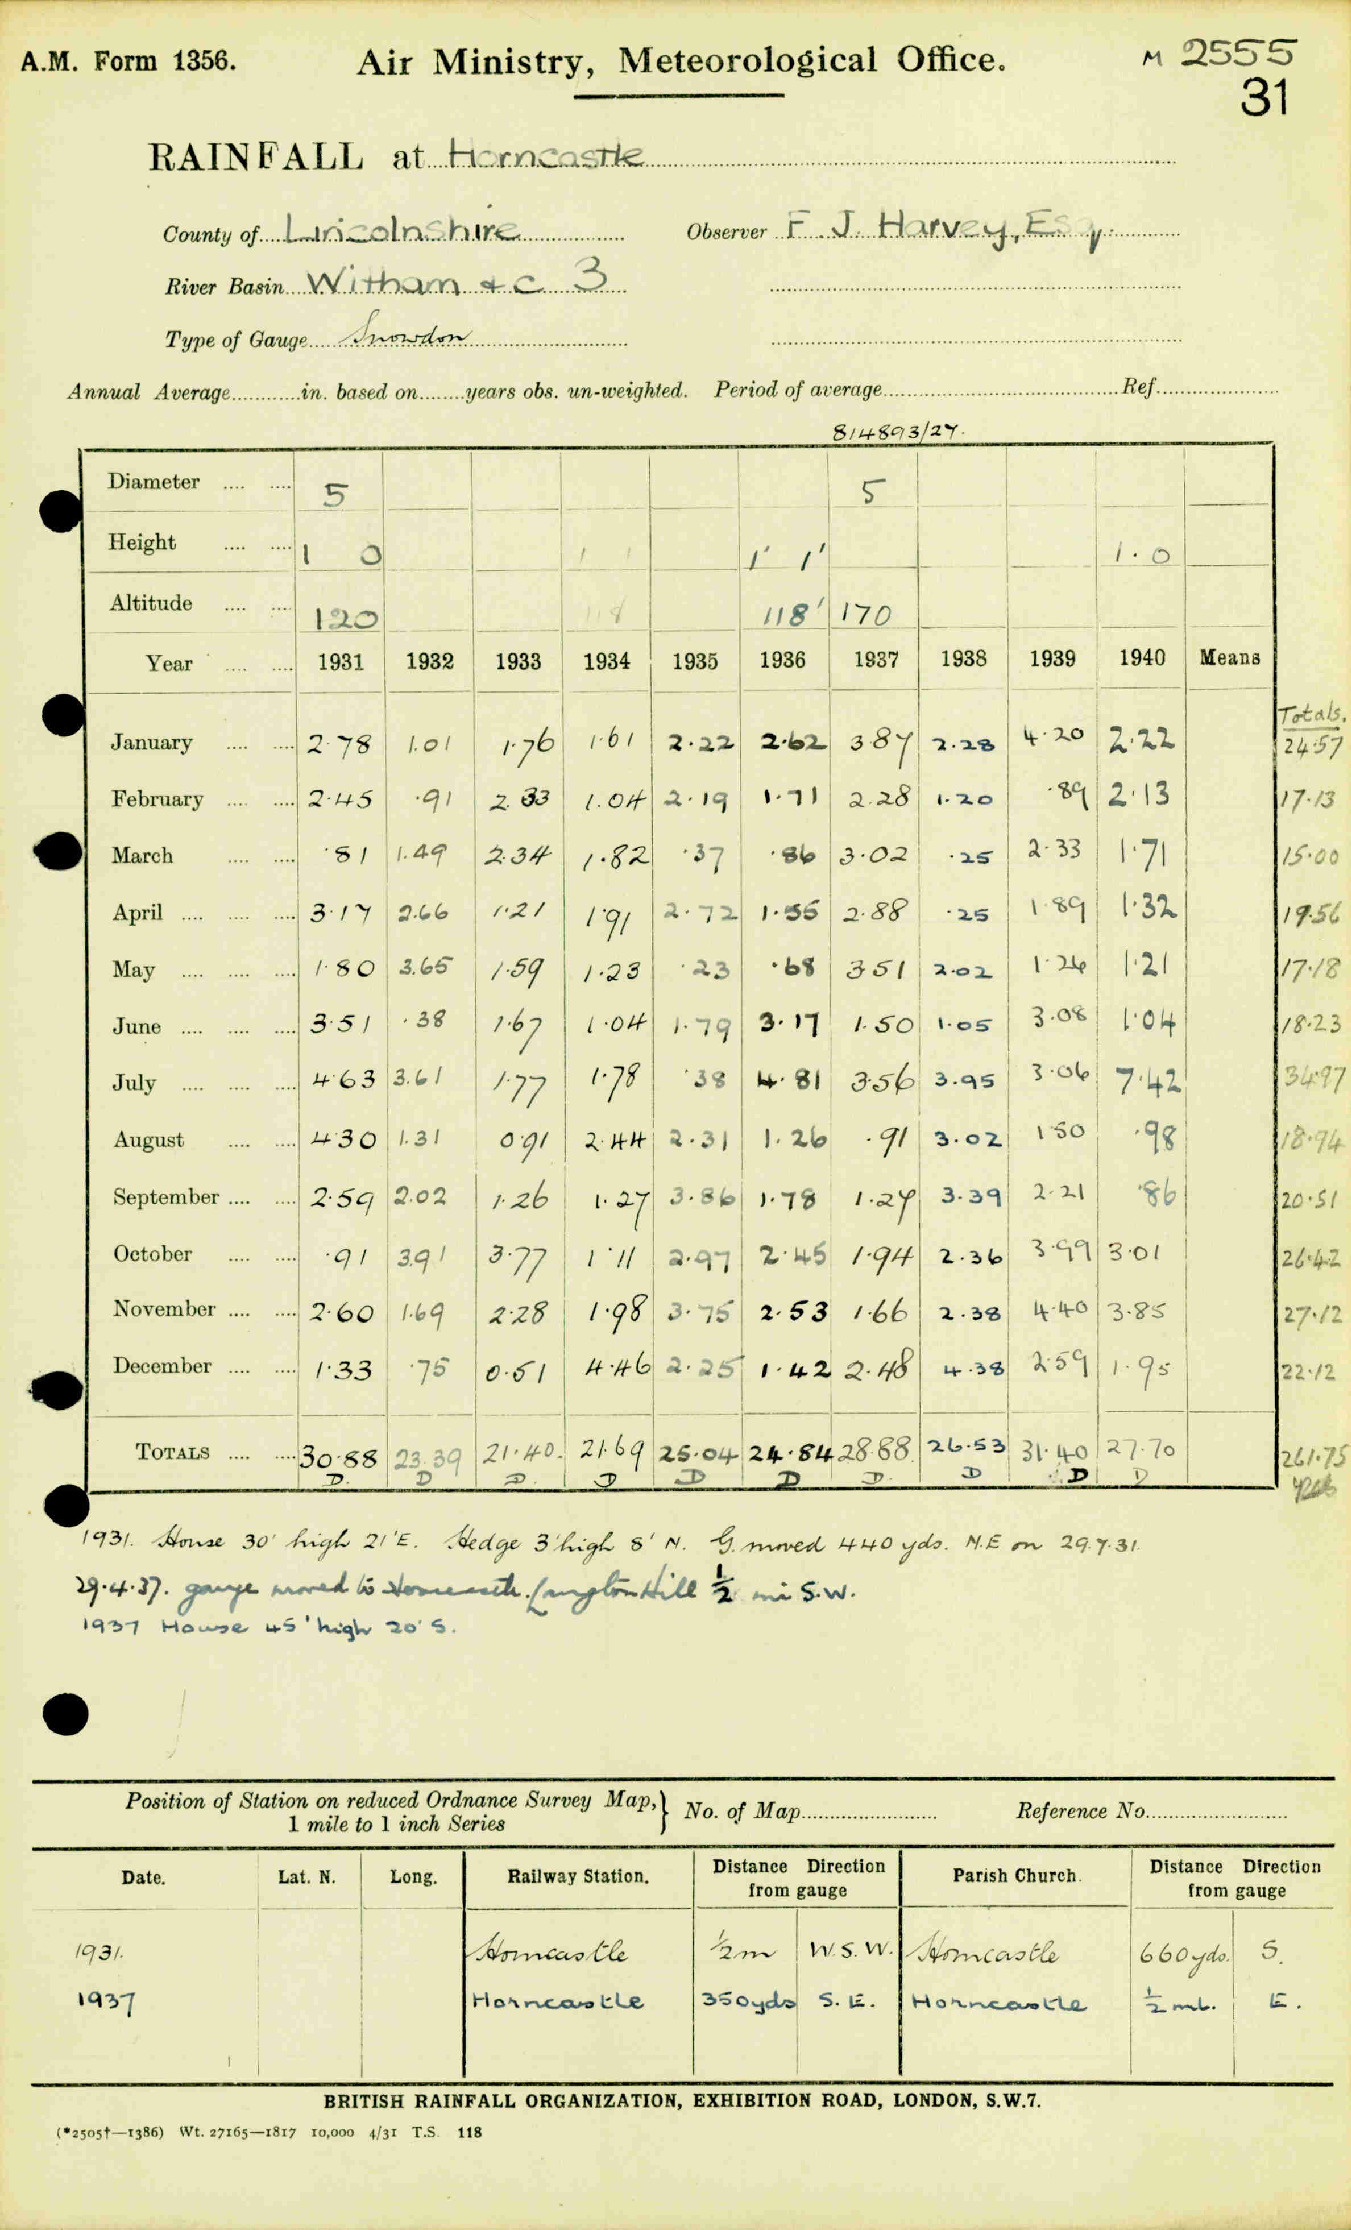 A.M. Form 1356. Air Ministry, Meteorological Office. M 2555
31
RAINFALL at Horncastle
County of Lincolnshire Observer F. J. Harvey, Esq.
River Basin Witham & c 3
Type of Gauge Snowdon
Annual Average in. based on years obs. un-weighted. Period of average Ref.
814893/27.
Diameter 5 5
Height 1 0 1 1 1' 1' 1.0
Altitude 120 118 118' 170
Year 1931 1932 1933 1934 1935 1936 1937 1938 1939 1940 Means
Totals.
January 2.78 1.01 1.76 1.61 2.22 2.62 3.87 2.28 4.20 2.22 24.57
February 2.45 .91 2.33 1.04 2.19 1.71 2.28 1.20 .89 2.13 17.13
March .81 1.49 2.34 1.82 .37 .86 3.02 .25 2.33 1.71 15.00
April 3.17 2.66 1.21 1.91 2.72 1.55 2.88 .25 1.89 1.32 19.56
May 1.80 3.65 1.59 1.23 .23 .68 3.51 2.02 1.26 1.21 17.18
June 3.51 .38 1.67 1.04 1.79 3.17 1.50 1.05 3.08 1.04 18.23
July 4.63 3.61 1.77 1.78 .38 4.81 3.56 3.95 3.06 7.42 34.97
August 4.30 1.31 0.91 2.44 2.31 1.26 .91 3.02 1.50 .98 18.94
September 2.59 2.02 1.26 1.27 3.86 1.78 1.27 3.39 2.21 .86 20.51
October .91 3.91 3.77 1.11 2.97 2.45 1.94 2.36 3.99 3.01 26.42
November 2.60 1.69 2.28 1.98 3.75 2.53 1.66 2.38 4.40 3.85 27.12
December 1.33 .75 0.51 4.46 2.25 1.42 2.48 4.38 2.59 1.95 22.12
TOTALS 30.88 23.39 21.40. 21.69 25.04 24.84 28.88 26.53 31.40 27.70 261.75
D. D D. D D D D. D D D
1931. House 30' high 21'E. Hedge 3'high 8' N. G. moved 440 yds. N.E on 29.7.31
29.4.37. gauge moved to Horncastle. Langton Hill ½ mi S.W.
1937 House 45' high 20' S.
Position of Station on reduced Ordnance Survey Map, 1 mile to 1 inch Series } No. of Map Reference No.
Date. Lat. N. Long. Railway Station. Distance Direction from gauge Parish Church. Distance Direction from gauge
1931. Horncastle ½m W.S.W. Horncastle 660yds. S.
1937 Horncastle 350yds S.E. Horncastle ½ ml. E.
BRITISH RAINFALL ORGANIZATION, EXHIBITION ROAD, LONDON, S.W.7.
(*2505†—1386) Wt. 27165—1817 10,000 4/31 T.S. 118